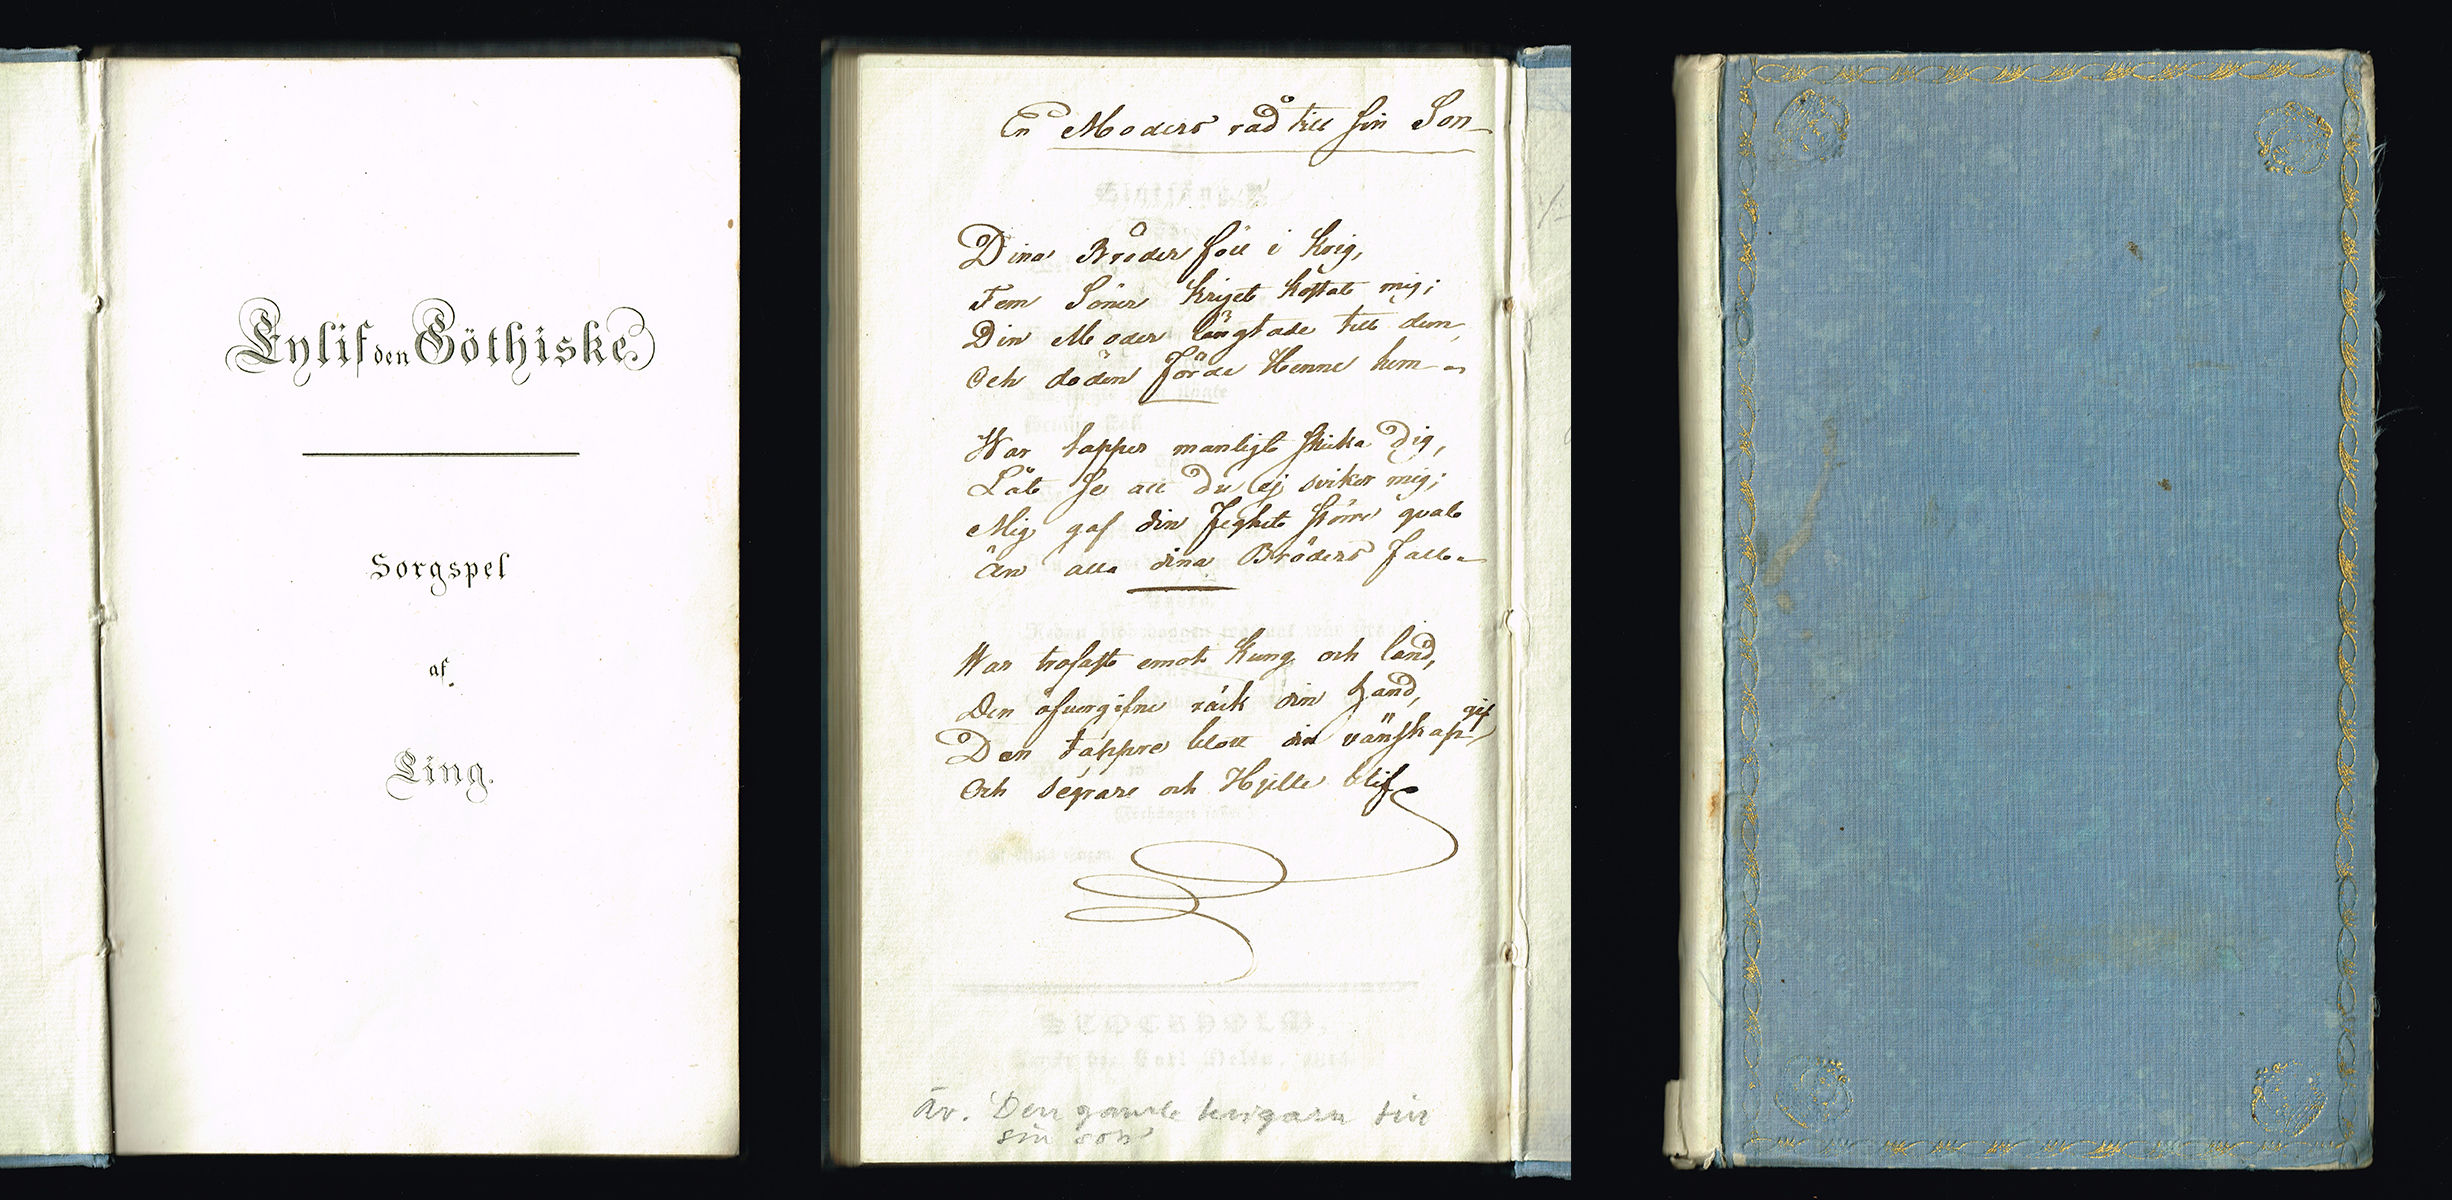 Eylif den Göthiske
Sorgspel
af
Ling.
En Moders råd till sin Son
Dina Bröder föll i krig,
Fem Söner kriget kostat mig;
Din Moder längtade till dem,
Och döden förde Henne hem
War tapper manligt skicka dig,
Låt se att du ej sviker mig;
Mig gaf din feghet större qval
Än alla dina Bröders fall
War trofast emot Kung och land,
Den öfvergifne räck din hand,
Den tappre blott din vänskap gif
Och segrare och Hjelte blif
Äv. 'Den gamle krigarn till
sin son'